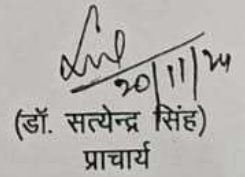 20/11/24
(डॉ. सत्येन्द्र सिंह)
प्राचार्य